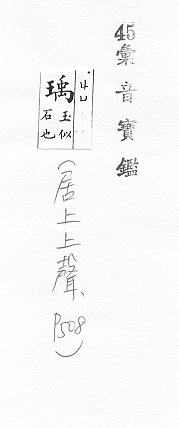 45彙音寶鑑
ㄐㄩ
瑀 玉似
石也
(居上上聲、P508)